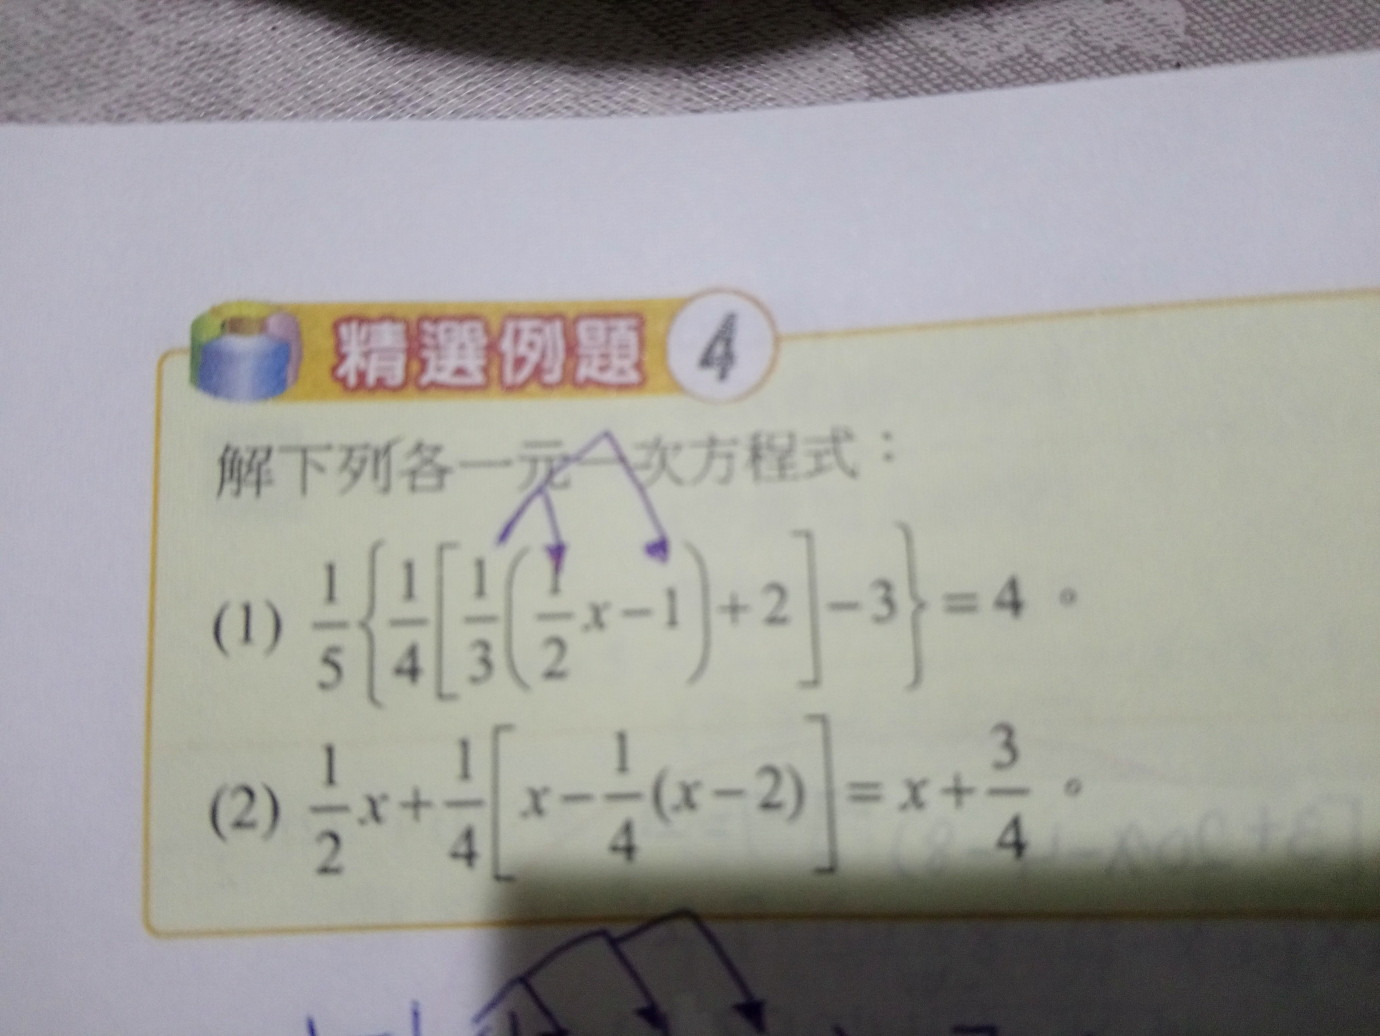 精選例題 4
解下列各一元一次方程式：
(1) 1/5{1/4[1/3(1/2x−1)+2]−3}=4。
(2) 1/2x+1/4[x−1/4(x−2)]=x+3/4。